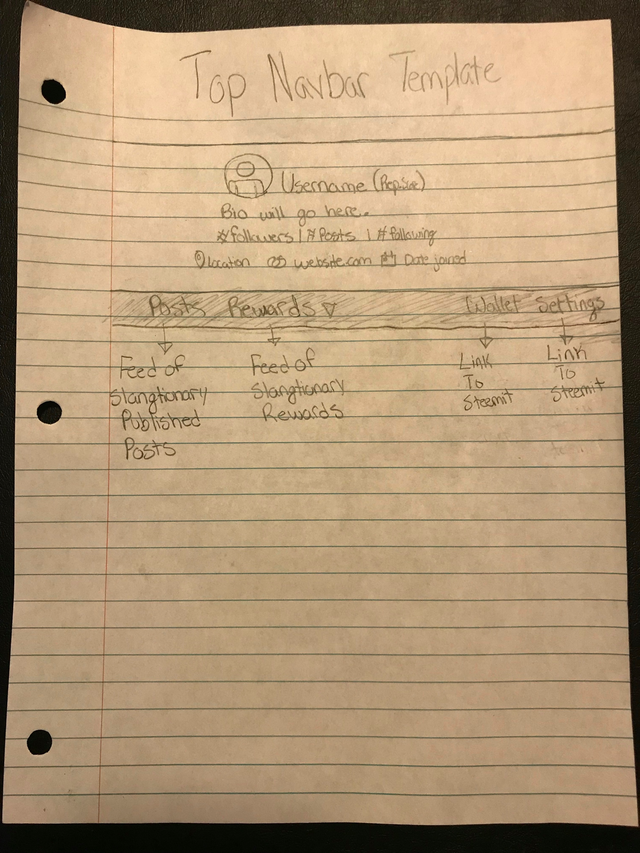 Top Navbar Template
Username (Rep.Score)
Bio will go here.
#followers | # Posts | # following
location website.com Date joined
Posts Rewards ▽ Wallet Settings
Feed of Slangtionary Published Posts
Feed of Slangtionary Rewards
Link To Steemit
Link To Steemit